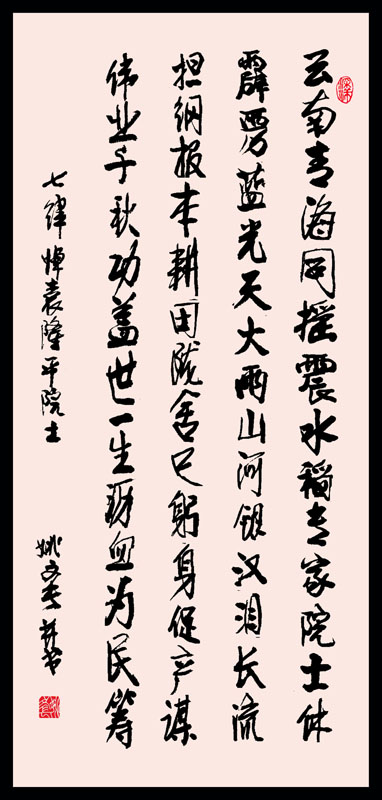 云南青海同摇震水稻专家院士休
霹雳蓝光天大雨山河银汉泪长流
担纲报本耕田陇舍己躬身促产谋
伟业千秋功盖世一生沥血为民筹
七律悼袁隆平院士
姚文并书